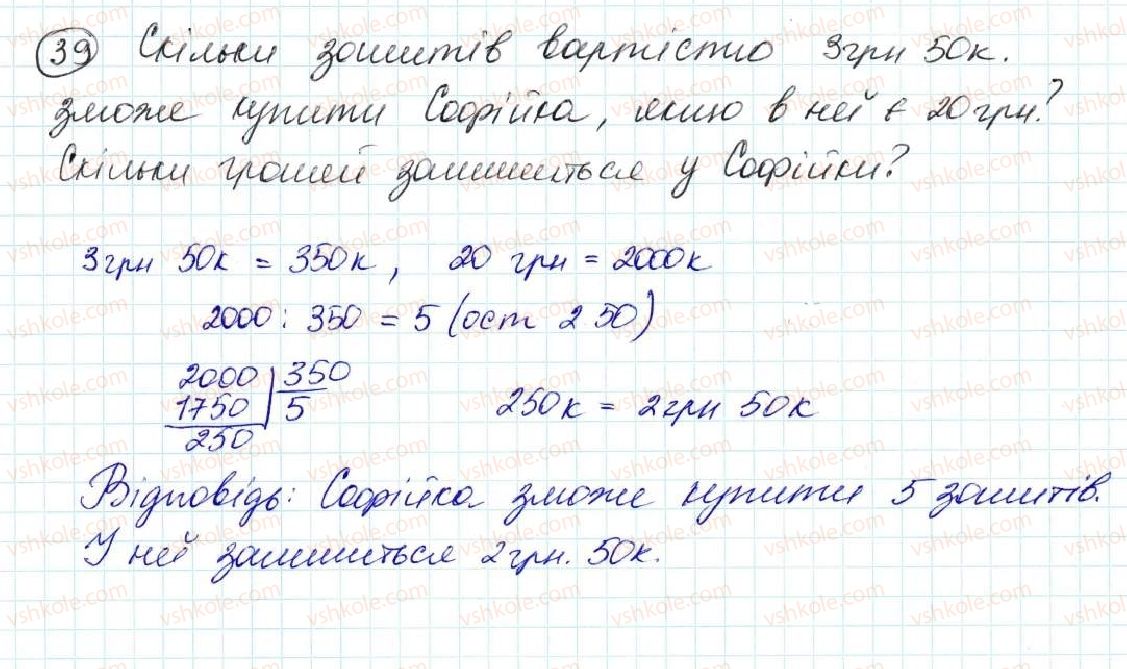 39 Скільки зошитів вартістю 3грн 50к.
зможе купити Софійка, якщо в неї є 20грн?
Скільки грошей залишиться у Софійки?
3грн 50к = 350к, 20 грн = 2000к
2000 : 350 = 5 (ост 250)
2000 350
1750 5
250
250к = 2грн 50к
Відповідь: Софійка зможе купити 5 зошитів.
У неї залишиться 2грн. 50к.